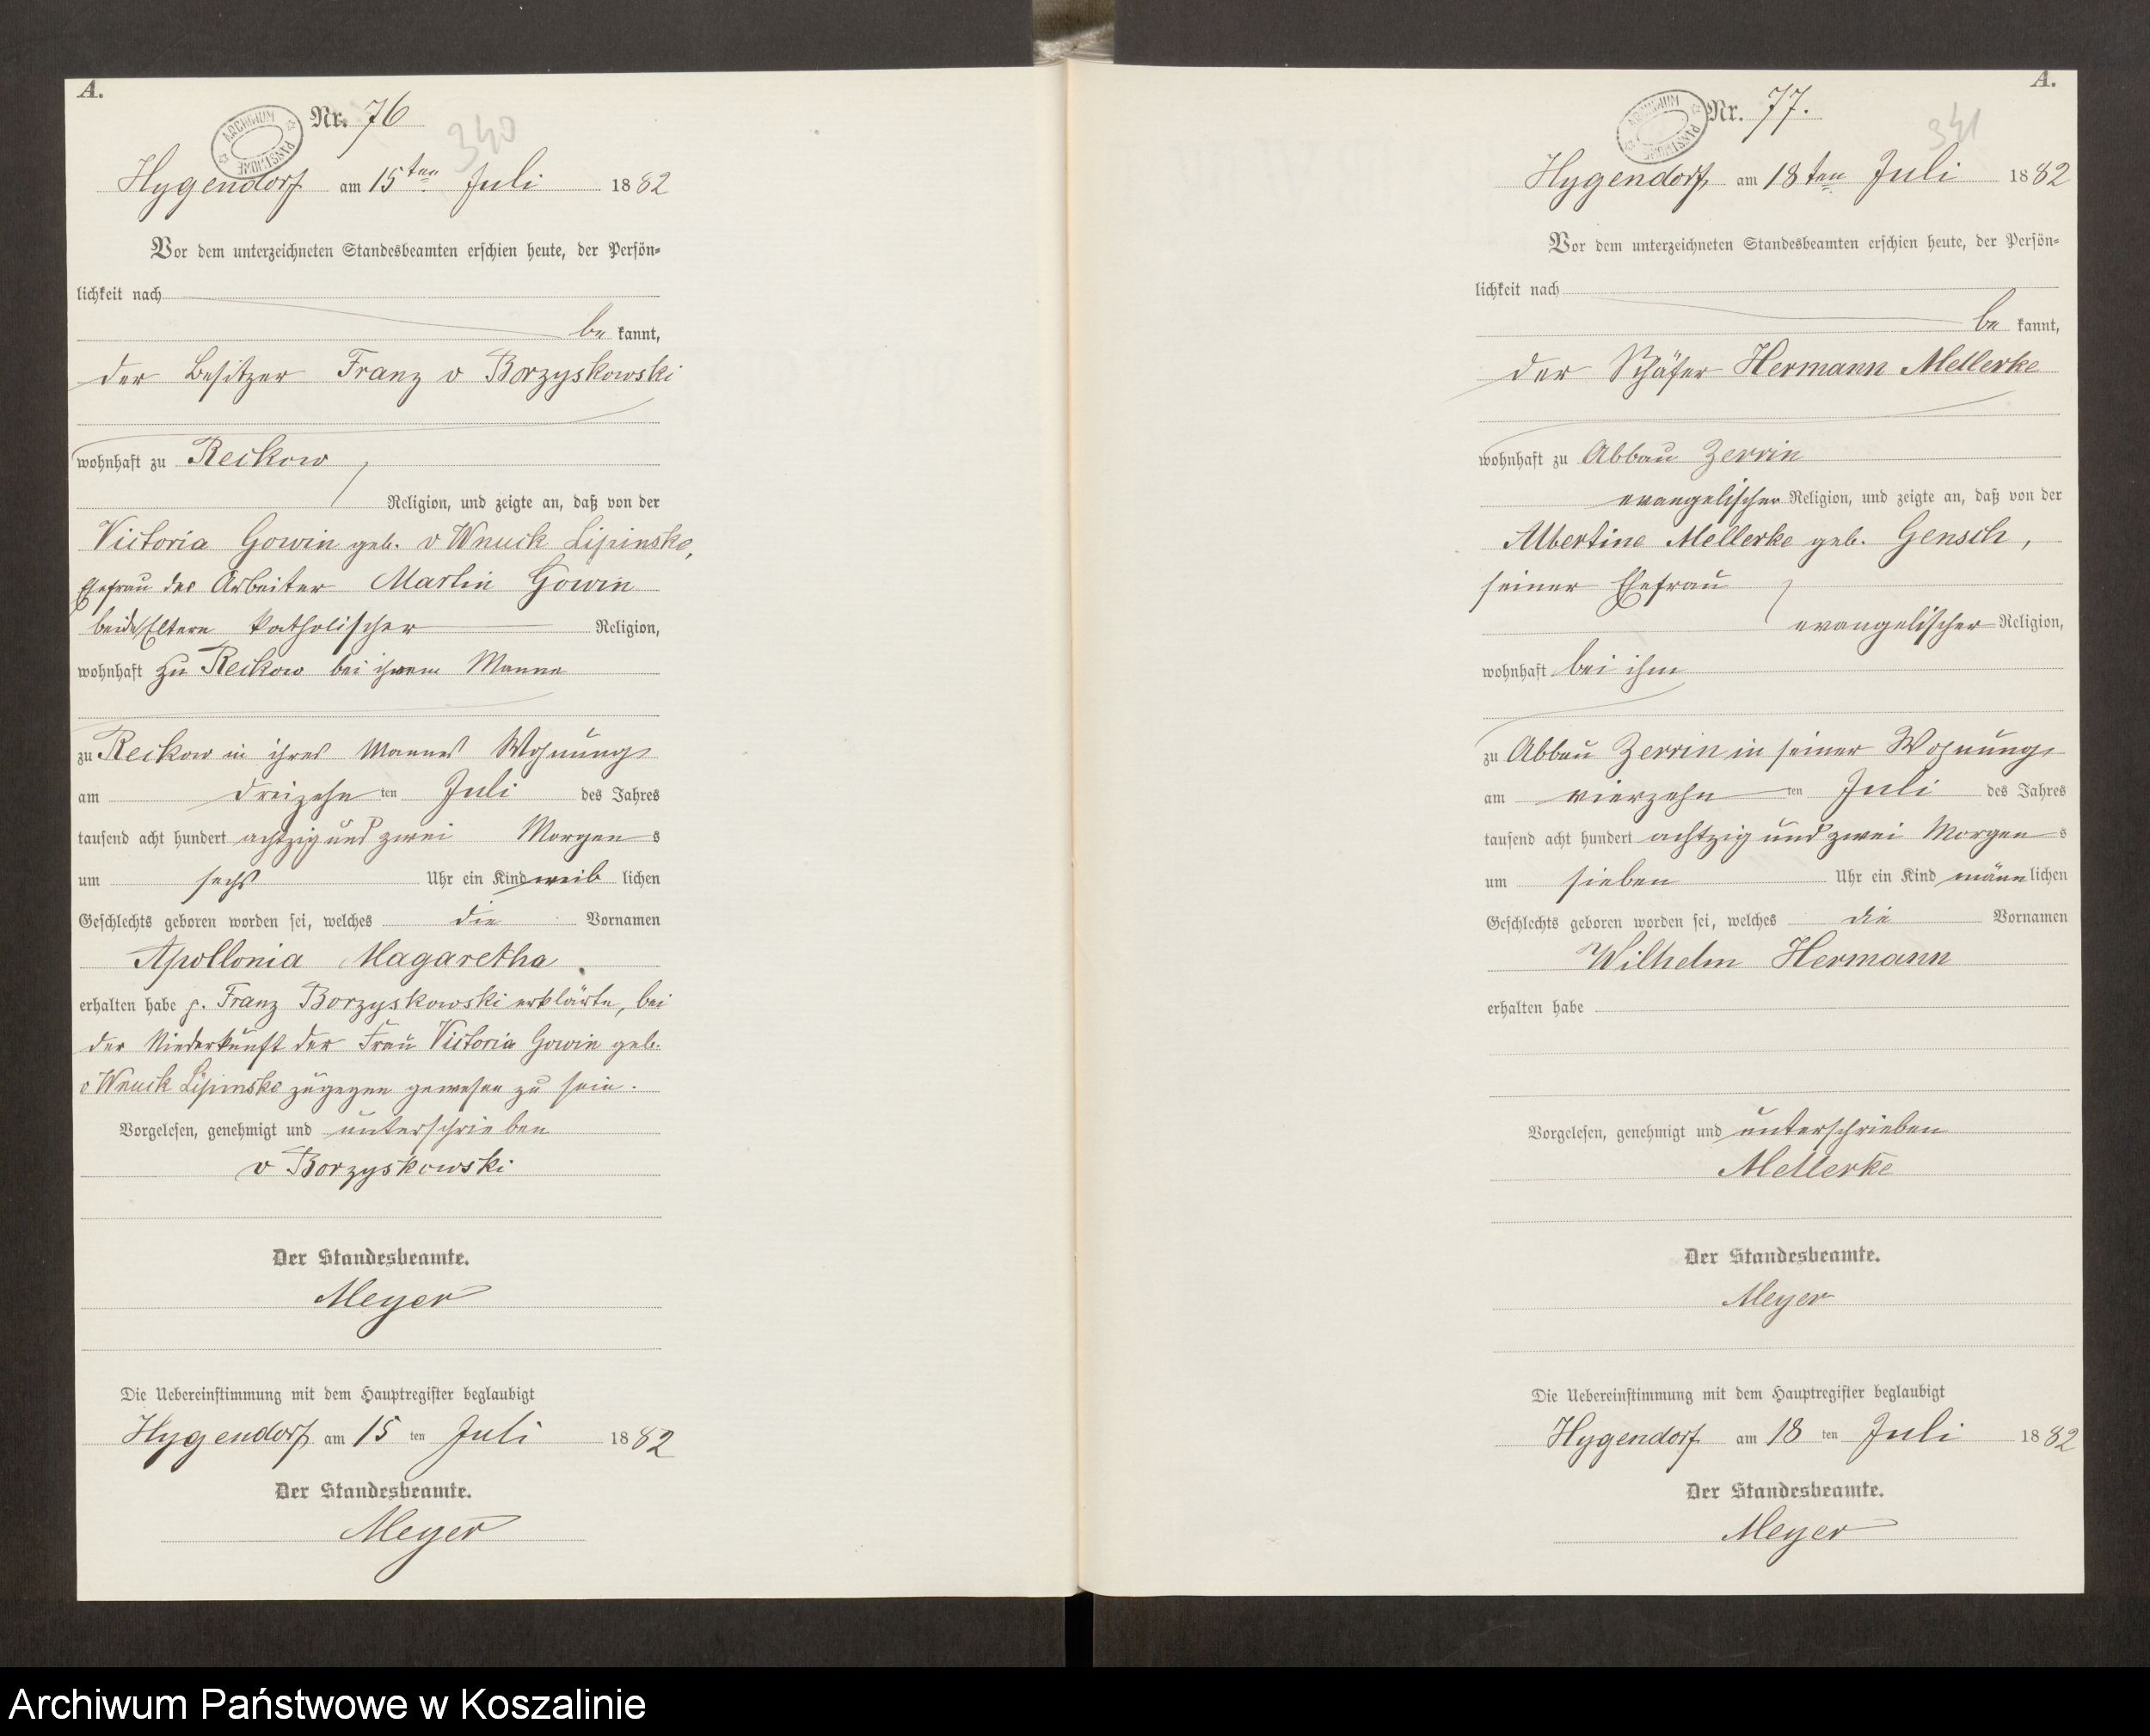 A.
ARCHIWUM PAŃSTWOWE
Nr. 76
340
Hygendorf am 15ten Juli 1882
Vor dem unterzeichneten Standesbeamten erschien heute, der Persön-
lichkeit nach
be kannt,
der Besitzer Franz v Borzyskowski
wohnhaft zu Reckow
Religion, und zeigte an, daß von der
Victoria Gowin geb. v Wnuck Lipinske,
Ehefrau des Arbeiter Martin Gowin
beide Eltern katholischer Religion,
wohnhaft zu Reckow bei ihrem Manne
zu Reckow in ihres Mannes Wohnung
am dreizehn ten Juli des Jahres
tausend acht hundert achtzig und zwei Morgen s
um sechs Uhr ein Kind weib lichen
Geschlechts geboren worden sei, welches die Vornamen
Apollonia Magaretha
erhalten habe p. Franz Borzyskowski erklärte, bei
der Niederkunft der Frau Victoria Gowin geb.
v Wnuck Lipinske zugegen gewesen zu sein.
Vorgelesen, genehmigt und unterschrieben
v Borzyskowski
Der Standesbeamte.
Meyer
Die Uebereinstimmung mit dem Hauptregister beglaubigt
Hygendorf am 15 ten Juli 1882
Der Standesbeamte.
Meyer
A.
ARCHIWUM PAŃSTWOWE
Nr. 77.
341
Hygendorf am 18ten Juli 1882
Vor dem unterzeichneten Standesbeamten erschien heute, der Persön-
lichkeit nach
be kannt,
der Schäfer Hermann Mellerke
wohnhaft zu Abbau Zerrin
evangelischer Religion, und zeigte an, daß von der
Albertine Mellerke geb. Gensch,
seiner Ehefrau
evangelischer Religion,
wohnhaft bei ihm
zu Abbau Zerrin in seiner Wohnung
am vierzehn ten Juli des Jahres
tausend acht hundert achtzig und zwei Morgen s
um sieben Uhr ein Kind männ lichen
Geschlechts geboren worden sei, welches die Vornamen
Wilhelm Hermann
erhalten habe
Vorgelesen, genehmigt und unterschrieben
Mellerke
Der Standesbeamte.
Meyer
Die Uebereinstimmung mit dem Hauptregister beglaubigt
Hygendorf am 18 ten Juli 1882
Der Standesbeamte.
Meyer
Archiwum Państwowe w Koszalinie